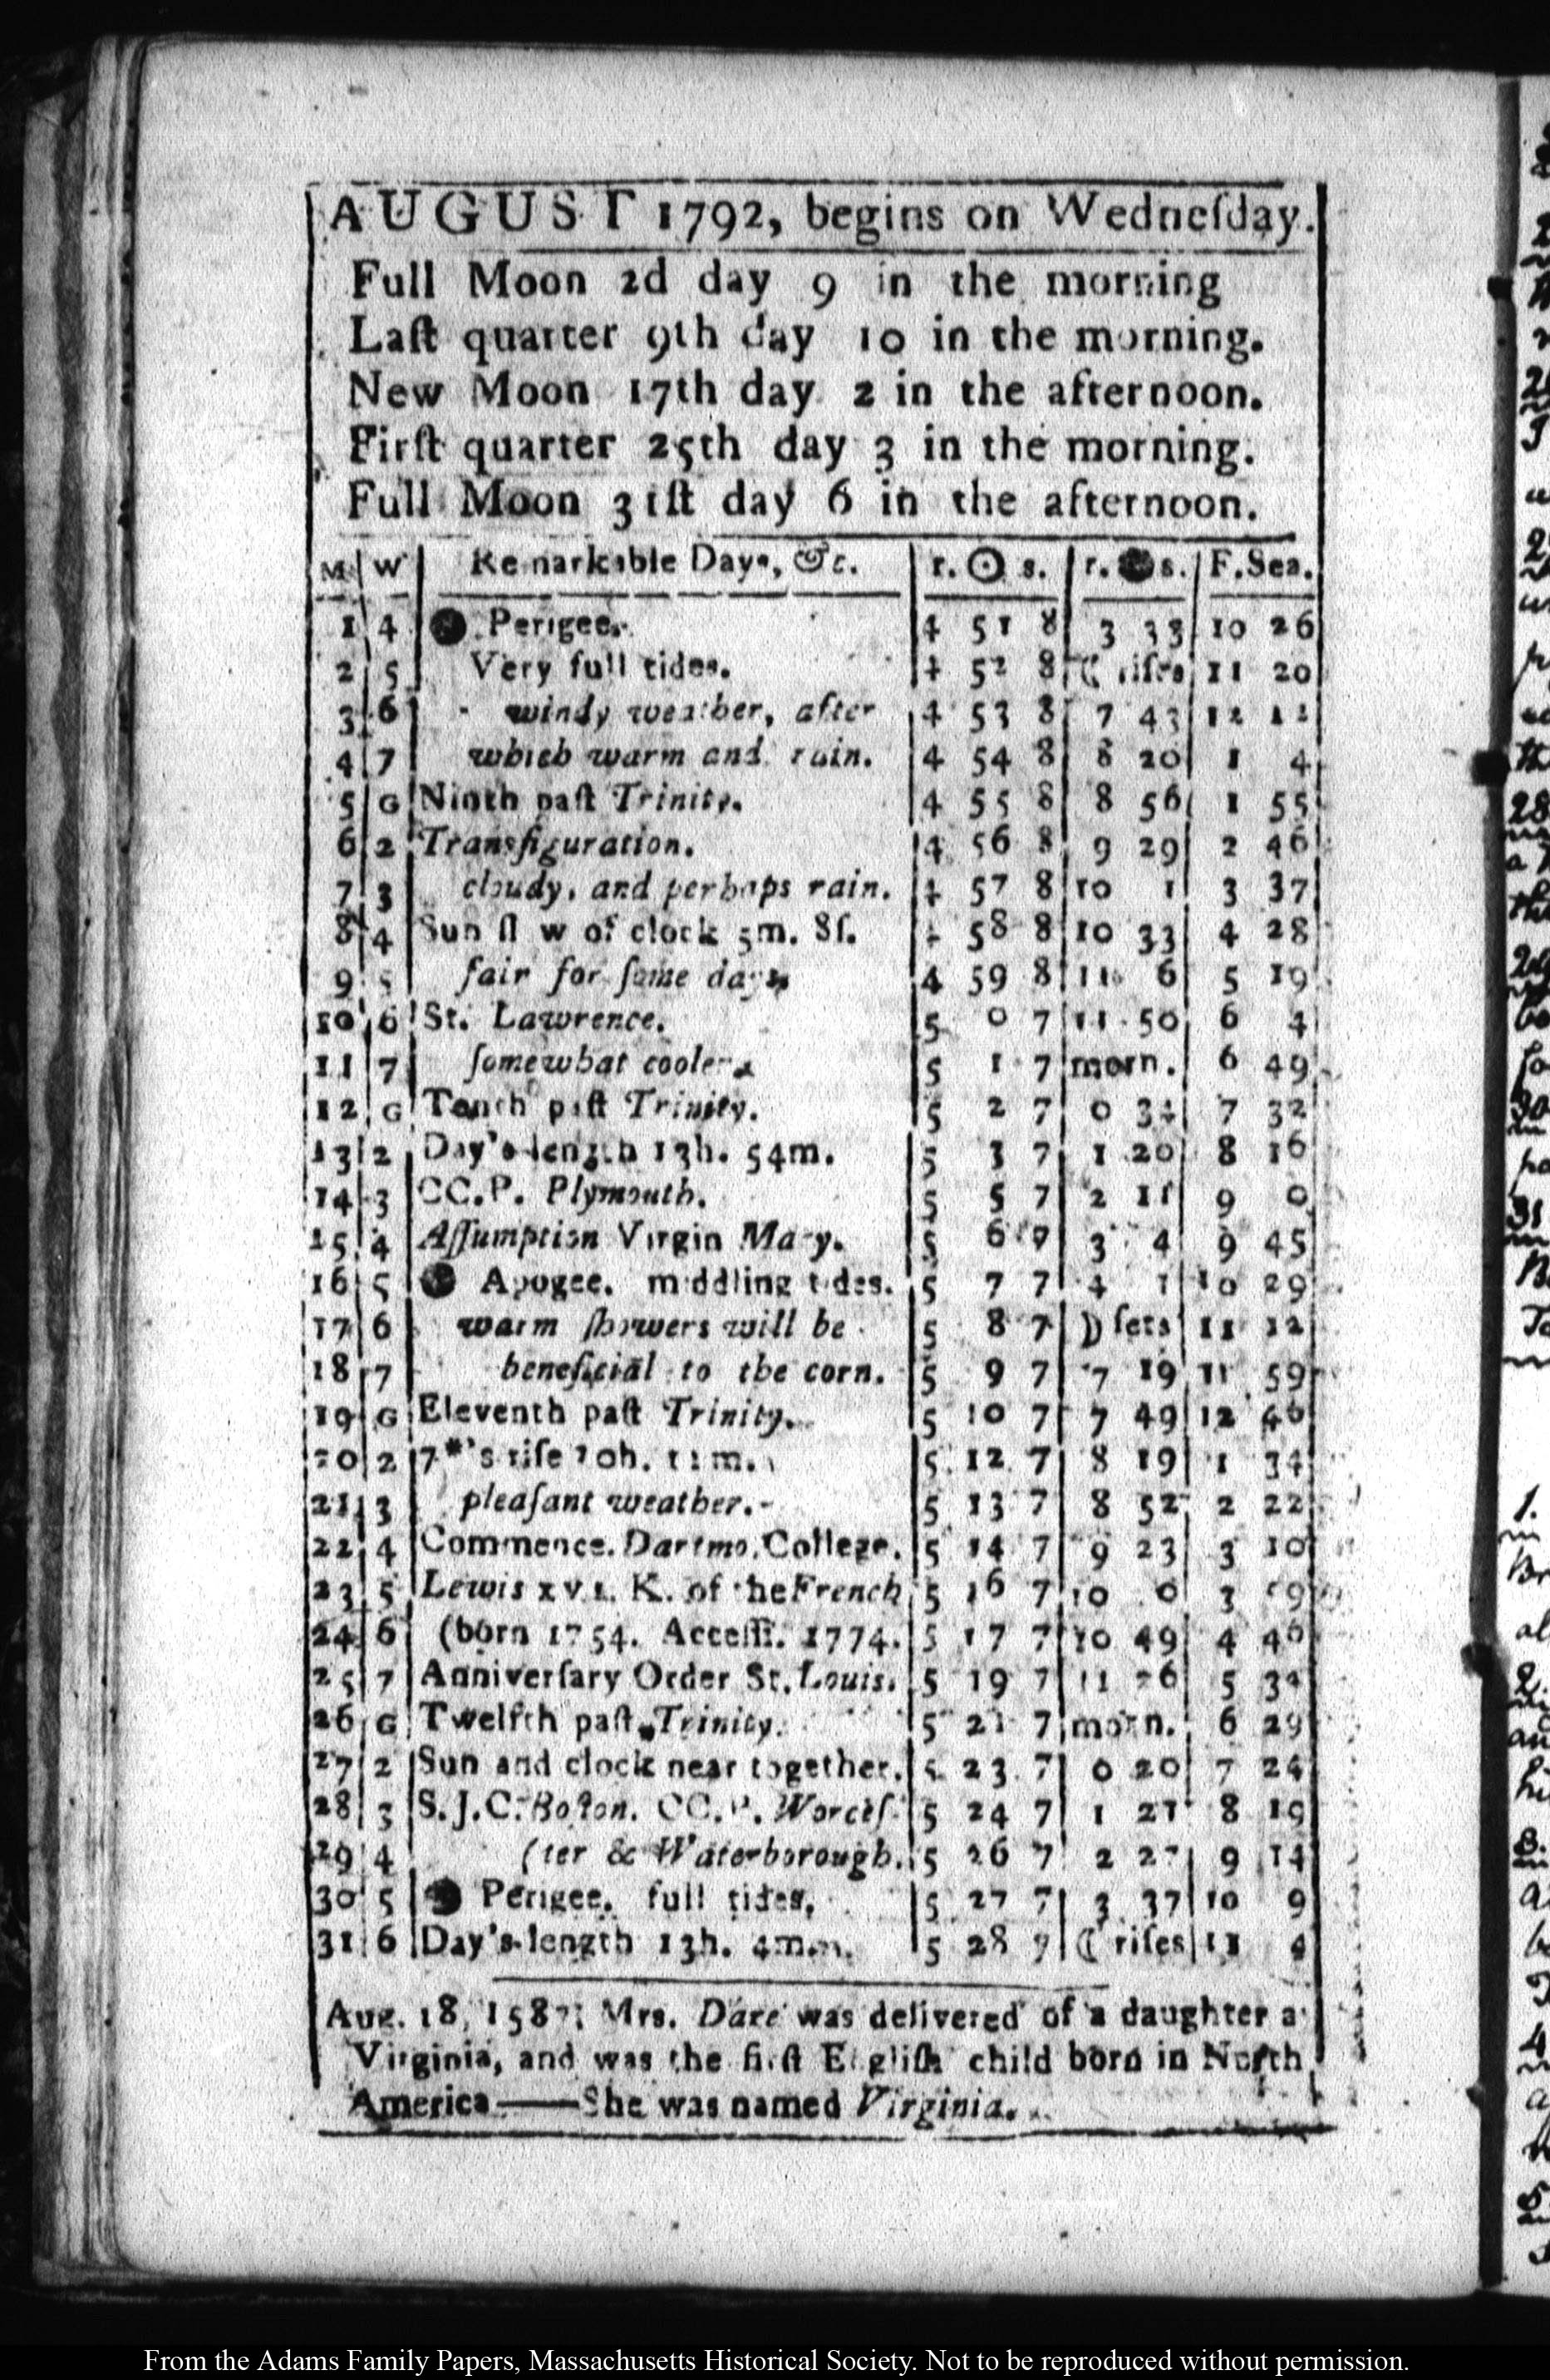 AUGUST 1792, begins on Wedneſday.
Full Moon 2d day 9 in the morning
Laſt quarter 9th day 10 in the morning.
New Moon 17th day 2 in the afternoon.
Firſt quarter 25th day 3 in the morning.
Full Moon 31ſt day 6 in the afternoon.
M W Remarkable Days, &c. r. ☉ s. r. ● s. F. Sea.
1 4 ● Perigee. 4 51 8 3 33 10 26
2 5 Very full tides. 4 52 8 ☾ riſes 11 20
3 6 windy weather, after 4 53 8 7 43 12 12
4 7 which warm and rain. 4 54 8 8 20 1 4
5 G Ninth paſt Trinity. 4 55 8 8 56 1 55
6 2 Transfiguration. 4 56 8 9 29 2 46
7 3 cloudy, and perhaps rain. 4 57 8 10 1 3 37
8 4 Sun ſl w of clock 5m. 8ſ. 4 58 8 10 33 4 28
9 5 fair for ſome days, 4 59 8 11 6 5 19
10 6 St. Lawrence. 5 0 7 11 50 6 4
11 7 ſomewhat cooler. 5 1 7 morn. 6 49
12 G Tenth paſt Trinity. 5 2 7 0 34 7 32
13 2 Day's length 13h. 54m. 5 3 7 1 20 8 16
14 3 CC.P. Plymouth. 5 5 7 2 11 9 0
15 4 Aſſumption Virgin Mary. 5 6 7 3 4 9 45
16 5 ● Apogee. middling tides. 5 7 7 4 1 10 29
17 6 warm ſhowers will be 5 8 7 ☽ ſets 11 12
18 7 beneficial to the corn. 5 9 7 7 19 11 59
19 G Eleventh paſt Trinity. 5 10 7 7 49 12 46
20 2 7*'s riſe 10h. 11m. 5 12 7 8 19 1 34
21 3 pleaſant weather. 5 13 7 8 52 2 22
22 4 Commence. Dartmo. College. 5 14 7 9 23 3 10
23 5 Lewis XVI. K. of the French 5 16 7 10 0 3 59
24 6 (born 1754. Acceſſi. 1774. 5 17 7 10 49 4 46
25 7 Anniverſary Order St. Louis. 5 19 7 11 26 5 34
26 G Twelfth paſt Trinity. 5 21 7 morn. 6 29
27 2 Sun and clock near together. 5 23 7 0 20 7 24
28 3 S.J.C. Boſton. CC.P. Worceſ- 5 24 7 1 27 8 19
29 4 (ter & Waterborough. 5 26 7 2 27 9 14
30 5 ● Perigee. full tides, 5 27 7 3 37 10 9
31 6 Day's length 13h. 4m. 5 28 7 ☾ riſes 11 4
Aug. 18, 1587; Mrs. Dare was delivered of a daughter a
Virginia, and was the firſt Engliſh child born in North
America —— She was named Virginia.
From the Adams Family Papers, Massachusetts Historical Society. Not to be reproduced without permission.